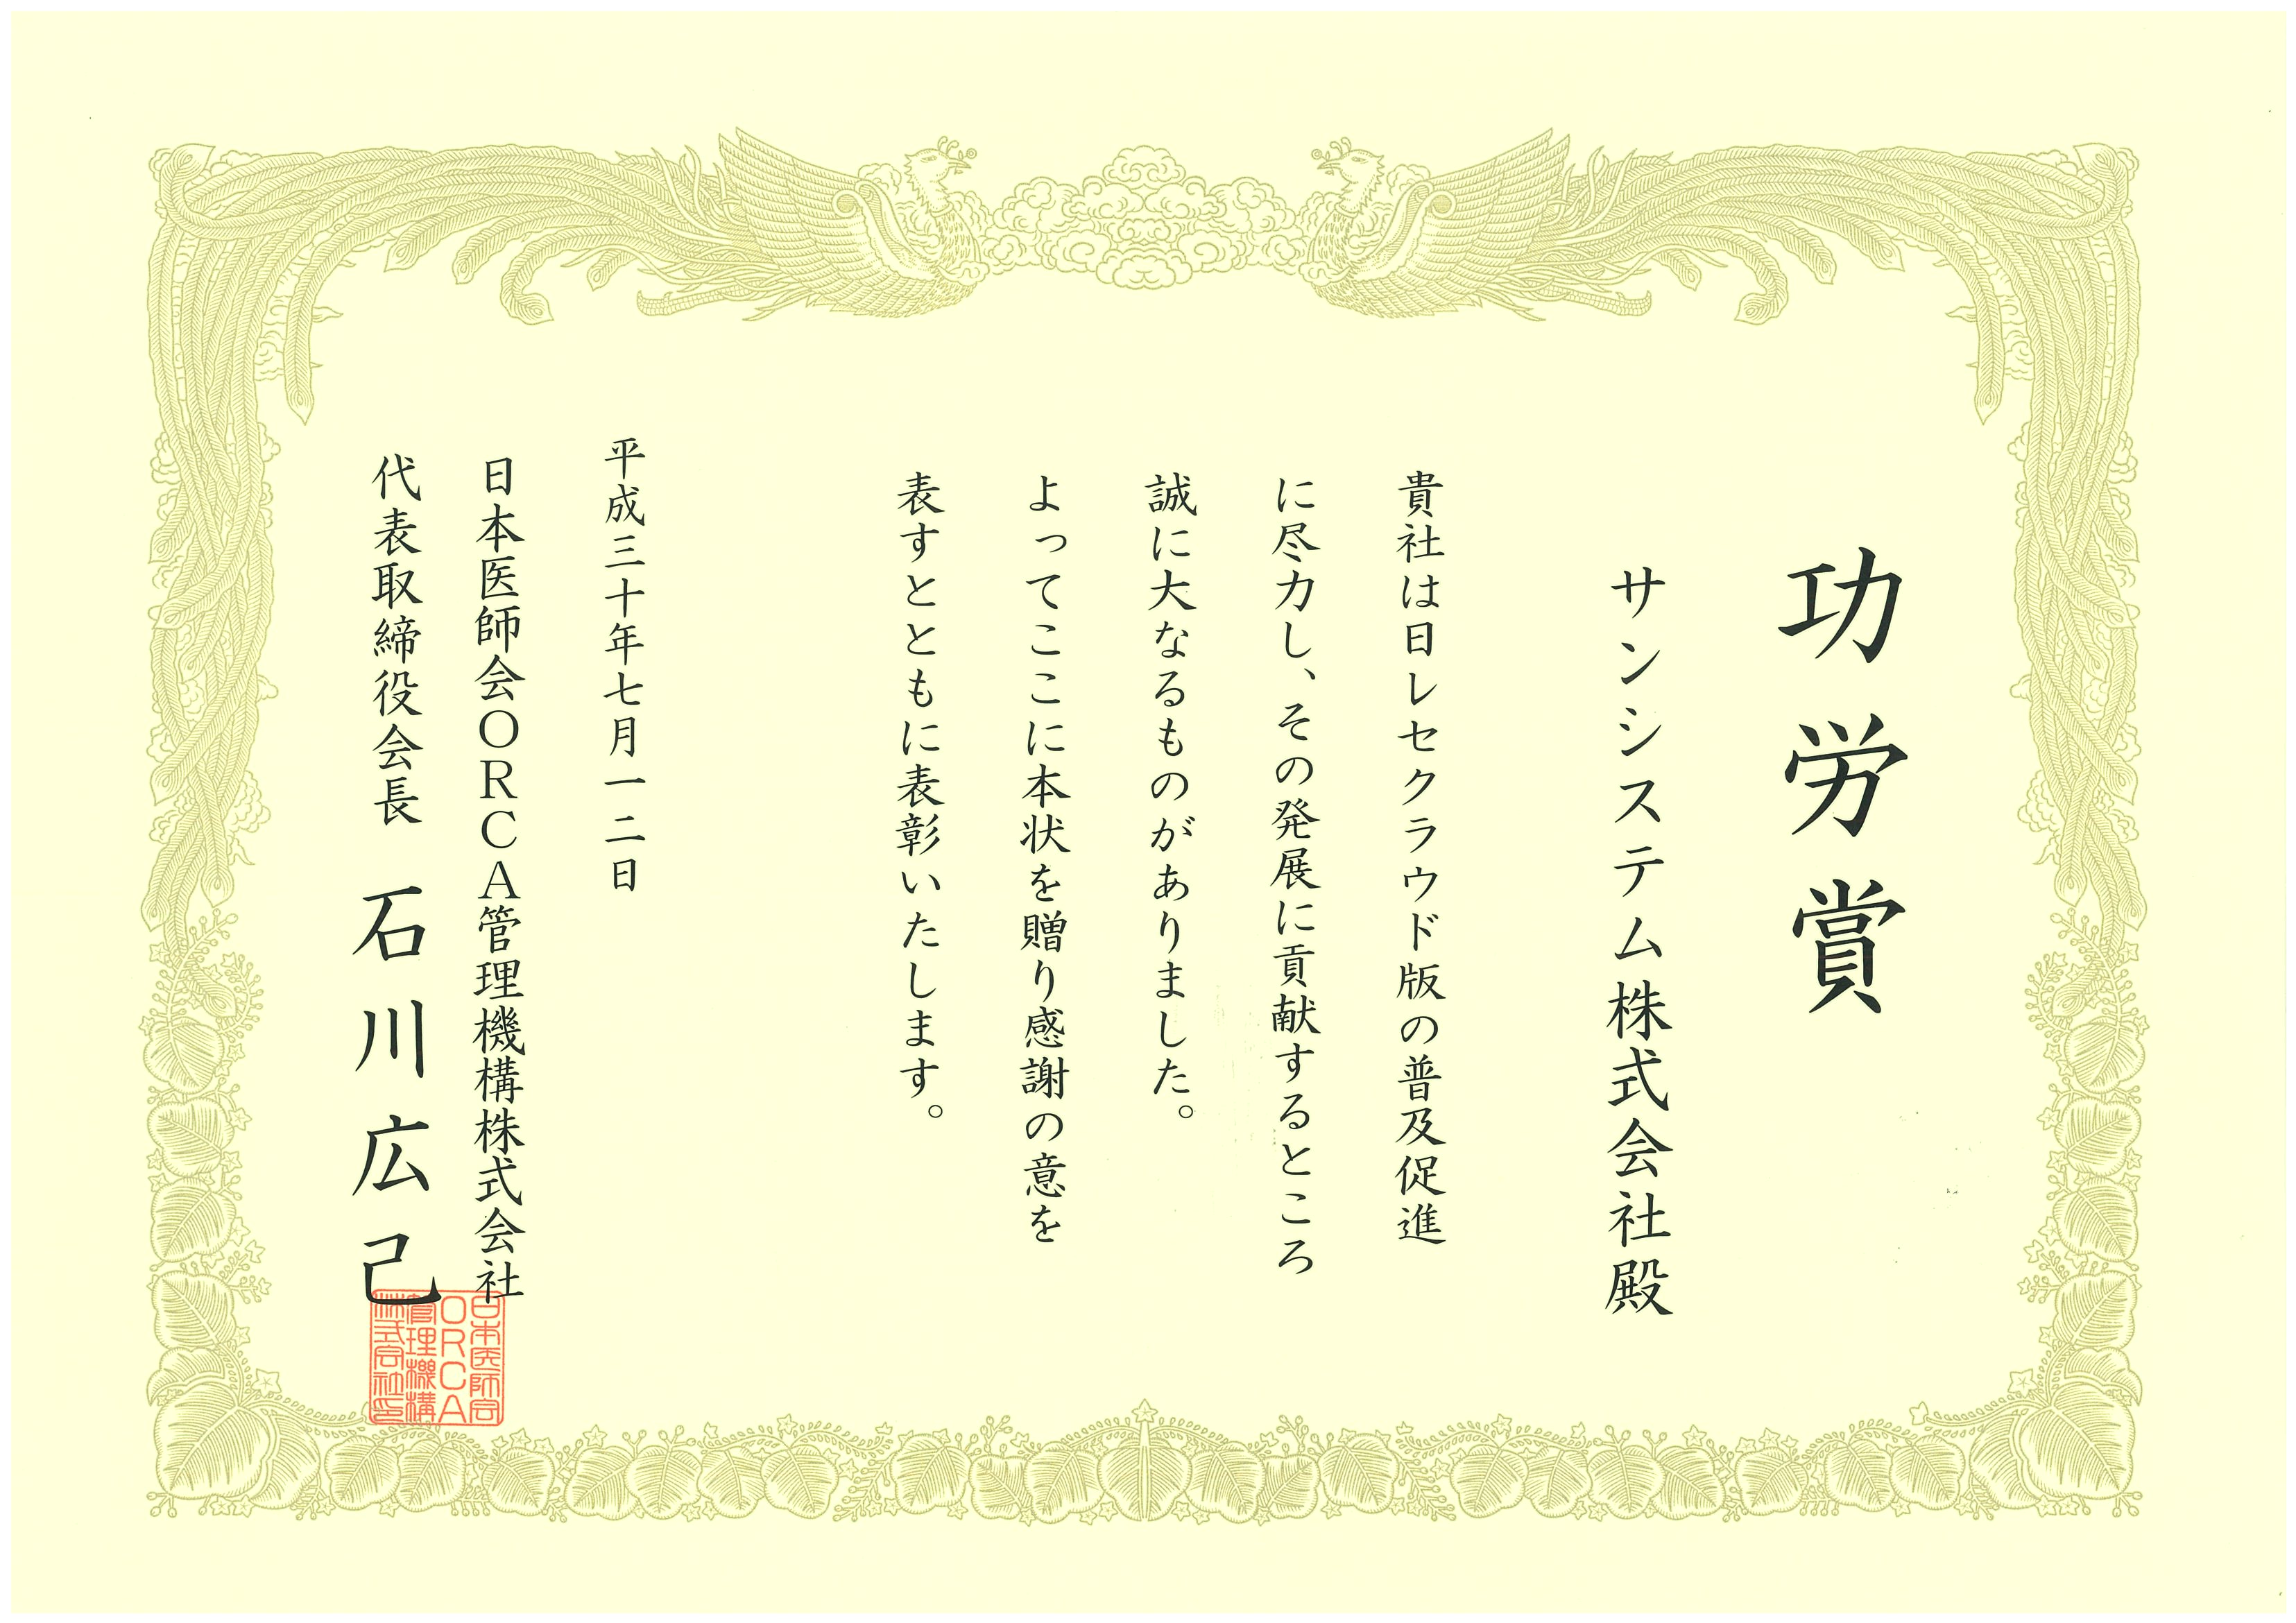 功労賞
サンシステム株式会社殿
貴社は日レセクラウド版の普及促進
に尽力し、その発展に貢献するところ
誠に大なるものがありました。
よってここに本状を贈り感謝の意を
表すとともに表彰いたします。
平成三十年七月一二日
日本医師会ORCA管理機構株式会社
代表取締役会長 石川広己
日本医師会
ORCA
管理機構
株式会社印